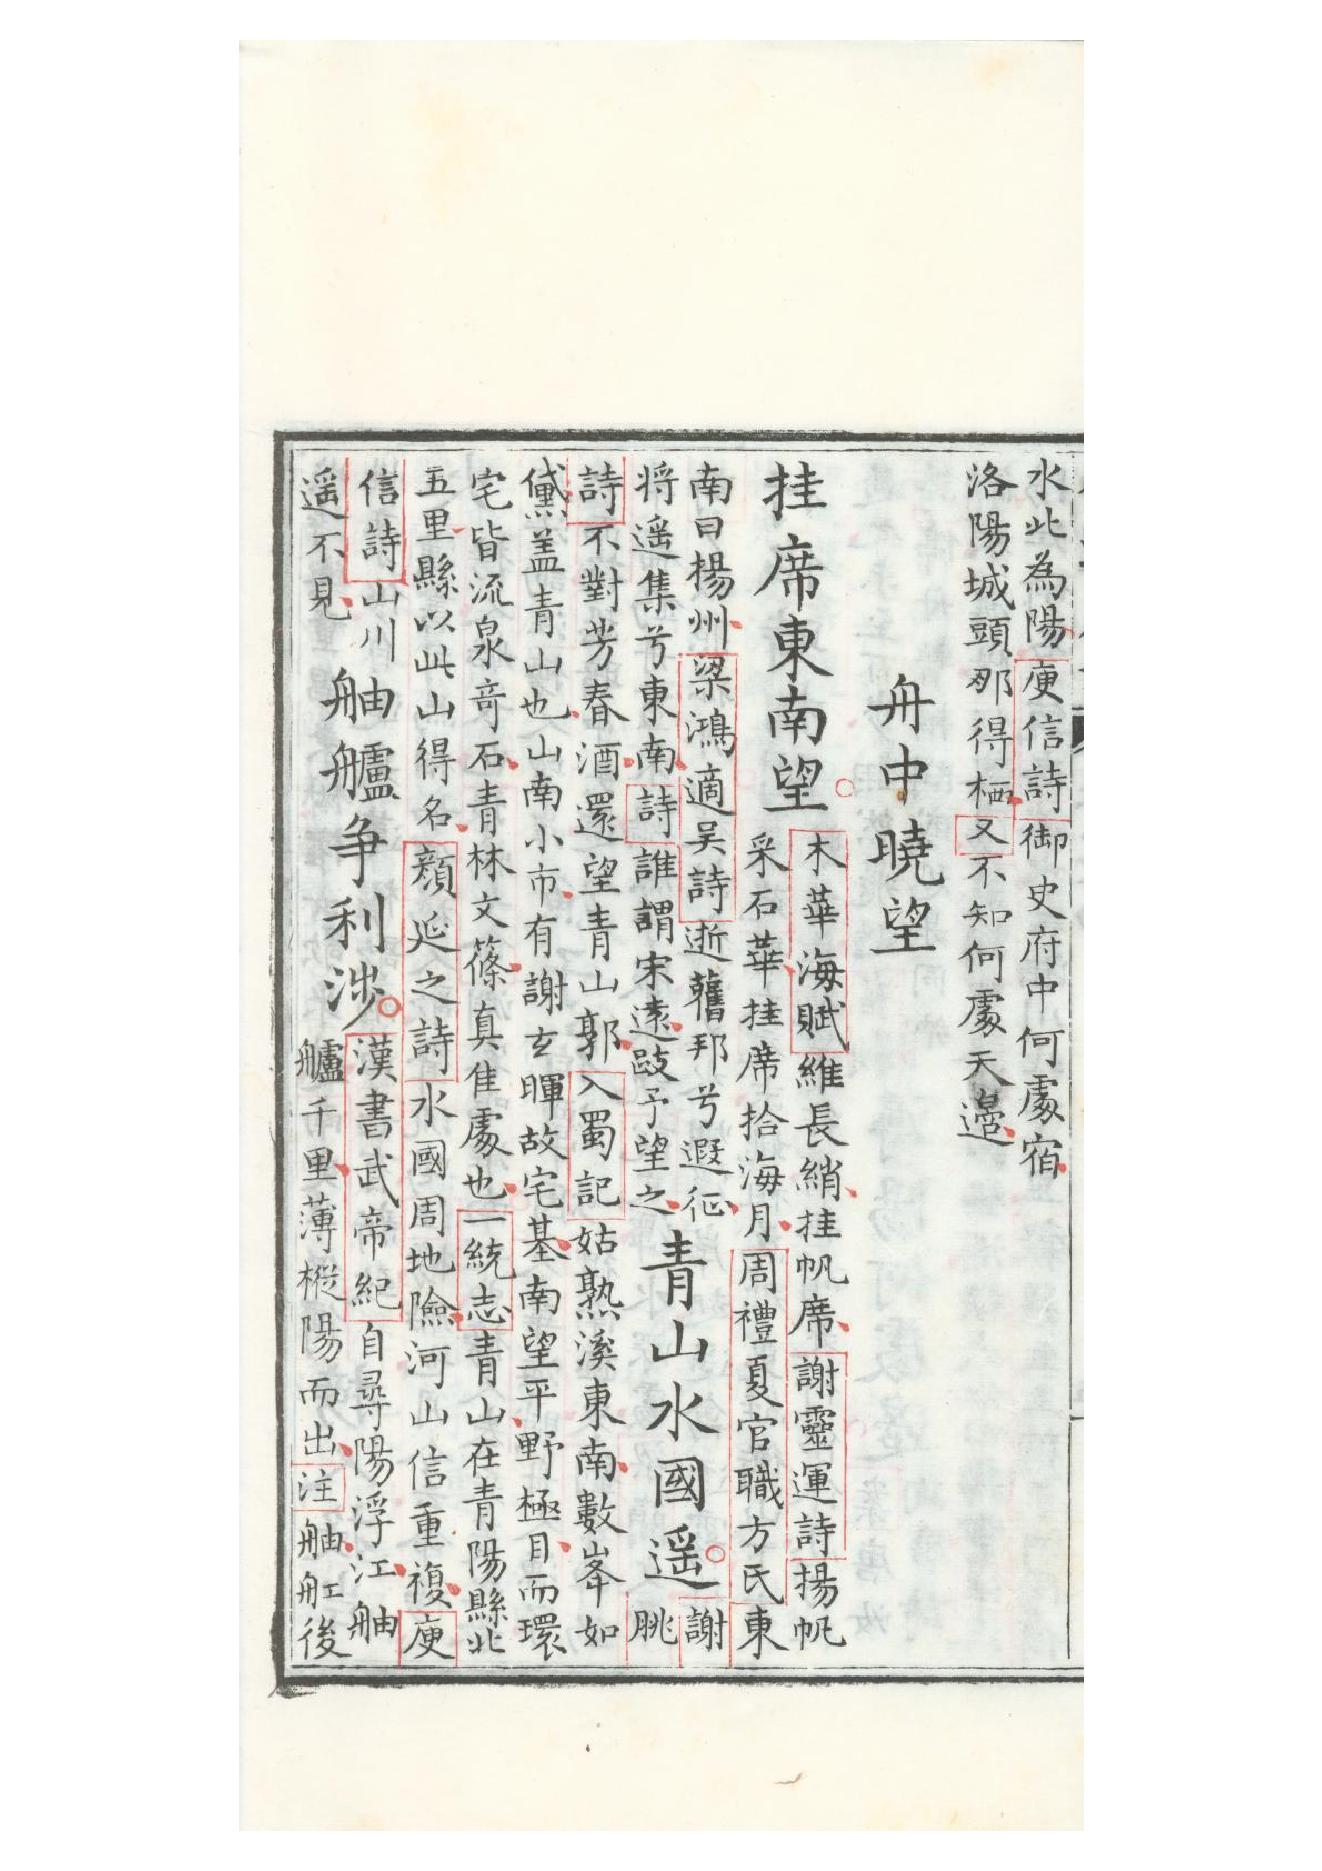 水北為陽庾信詩御史府中何處宿
洛陽城頭那得栖又不知何處天邊
舟中曉望
挂席東南望
木華海賦維長綃挂帆席謝靈運詩揚帆
采石華挂席拾海月周禮夏官職方氏東
南曰揚州梁鴻適吴詩逝舊邦兮遐征
將遥集兮東南詩誰謂宋遠跂予望之
青山水國遥
謝
朓
詩不對芳春酒還望青山郭入蜀記姑熟溪東南數峯如
黛盖青山也山南小市有謝玄暉故宅基南望平野極目而環
宅皆流泉竒石青林文篠真佳處也一統志青山在青陽縣北
五里縣以此山得名顔延之詩水國周地險河山信重複庾
信詩山川
遥不見
舳艫争利涉
漢書武帝紀自尋陽浮江舳
艫千里薄樅陽而出注舳舡後